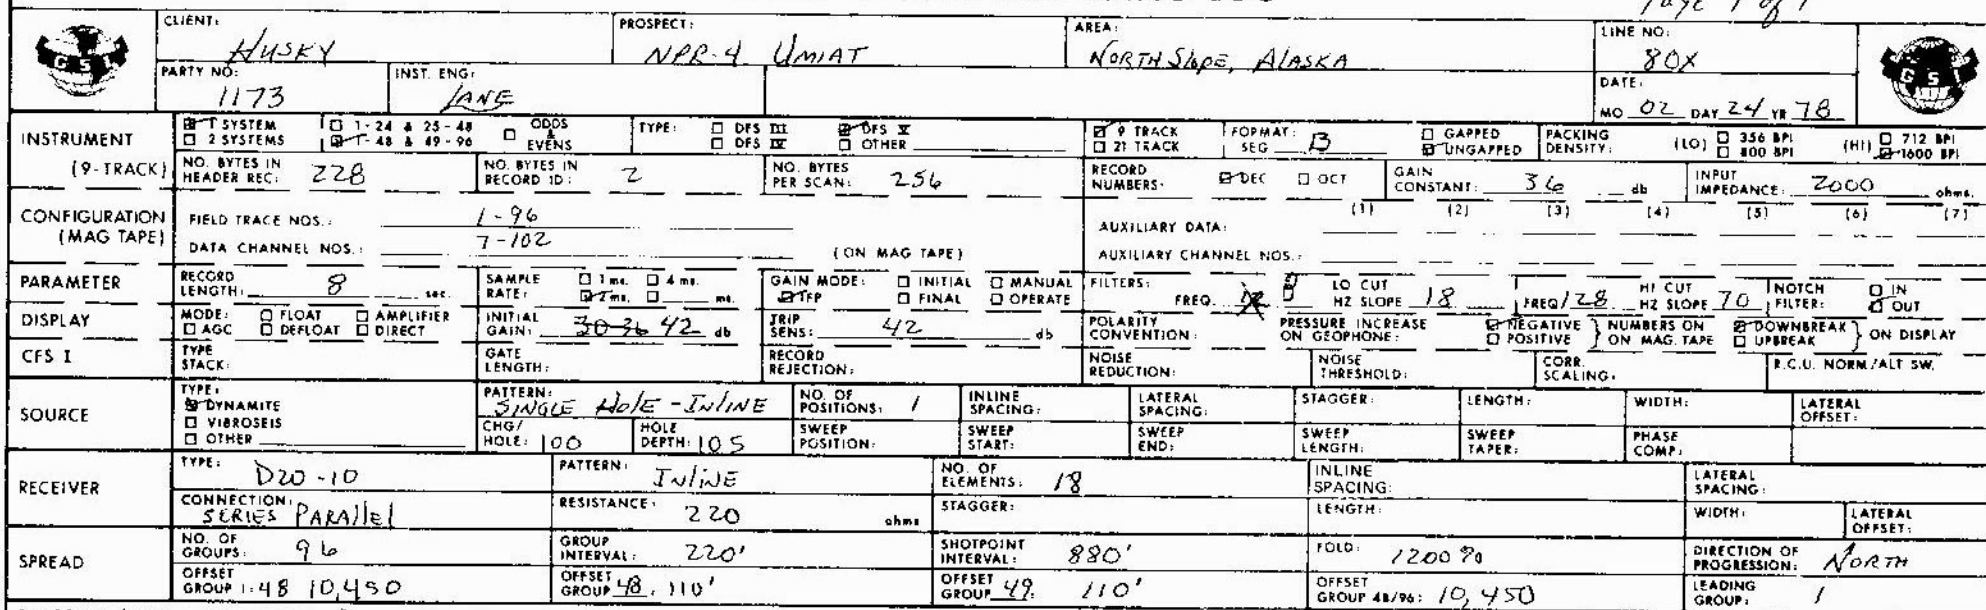 Page 1 of 1
CLIENT: HUSKY PROSPECT: NPR-4 UMIAT AREA: NORTH SLOPE, ALASKA LINE NO: 80X
GSI
PARTY NO: 1173 INST. ENG: LANE DATE: MO 02 DAY 24 YR 78
GSI
INSTRUMENT (9-TRACK)
1 SYSTEM 1-24 & 25-48 ODDS & EVENS TYPE: DFS III DFS V 9 TRACK FORMAT: SEG B GAPPED PACKING DENSITY: (LO) 356 BPI (HI) 712 BPI
2 SYSTEMS 1-48 & 49-96 DFS IV OTHER 21 TRACK UNGAPPED 800 BPI 1600 BPI
NO. BYTES IN HEADER REC: 228 NO. BYTES IN RECORD ID: 2 NO. BYTES PER SCAN: 256 RECORD NUMBERS: DEC OCT GAIN CONSTANT: 36 db INPUT IMPEDANCE: 2000 ohms.
CONFIGURATION (MAG TAPE)
FIELD TRACE NOS.: 1-96 AUXILIARY DATA: (1) (2) (3) (4) (5) (6) (7)
DATA CHANNEL NOS.: 7-102 (ON MAG TAPE) AUXILIARY CHANNEL NOS.:
PARAMETER RECORD LENGTH: 8 sec. SAMPLE RATE: 1 ms. 4 ms. 2 ms. ms. GAIN MODE: INITIAL MANUAL IFP FINAL OPERATE FILTERS: FREQ. LO CUT HZ SLOPE 18 FREQ 128 HI CUT HZ SLOPE 70 NOTCH FILTER: IN OUT
DISPLAY MODE: FLOAT AMPLIFIER AGC DEFLOAT DIRECT INITIAL GAIN: 30 36 42 db TRIP SENS: 42 db POLARITY CONVENTION: PRESSURE INCREASE ON GEOPHONE: NEGATIVE POSITIVE } NUMBERS ON MAG. TAPE DOWNBREAK UPBREAK } ON DISPLAY
CFS I TYPE STACK: GATE LENGTH: RECORD REJECTION: NOISE REDUCTION: NOISE THRESHOLD: CORR. SCALING: R.C.U. NORM/ALT SW.
SOURCE TYPE: DYNAMITE VIBROSEIS OTHER
PATTERN: SINGLE HOLE - INLINE NO. OF POSITIONS: 1 INLINE SPACING: LATERAL SPACING: STAGGER: LENGTH: WIDTH: LATERAL OFFSET:
CHG/HOLE: 100 HOLE DEPTH: 105 SWEEP POSITION: SWEEP START: SWEEP END: SWEEP LENGTH: SWEEP TAPER: PHASE COMP:
RECEIVER TYPE: D20-10 PATTERN: INLINE NO. OF ELEMENTS: 18 INLINE SPACING: LATERAL SPACING:
CONNECTION: SERIES PARALLEL RESISTANCE: 220 ohms STAGGER: LENGTH: WIDTH: LATERAL OFFSET:
SPREAD NO. OF GROUPS: 96 GROUP INTERVAL: 220' SHOTPOINT INTERVAL: 880' FOLD: 1200 % DIRECTION OF PROGRESSION: NORTH
OFFSET GROUP 1: 48 10,450 OFFSET GROUP 48: 110' OFFSET GROUP 49: 110' OFFSET GROUP 48/96: 10,450 LEADING GROUP: 1